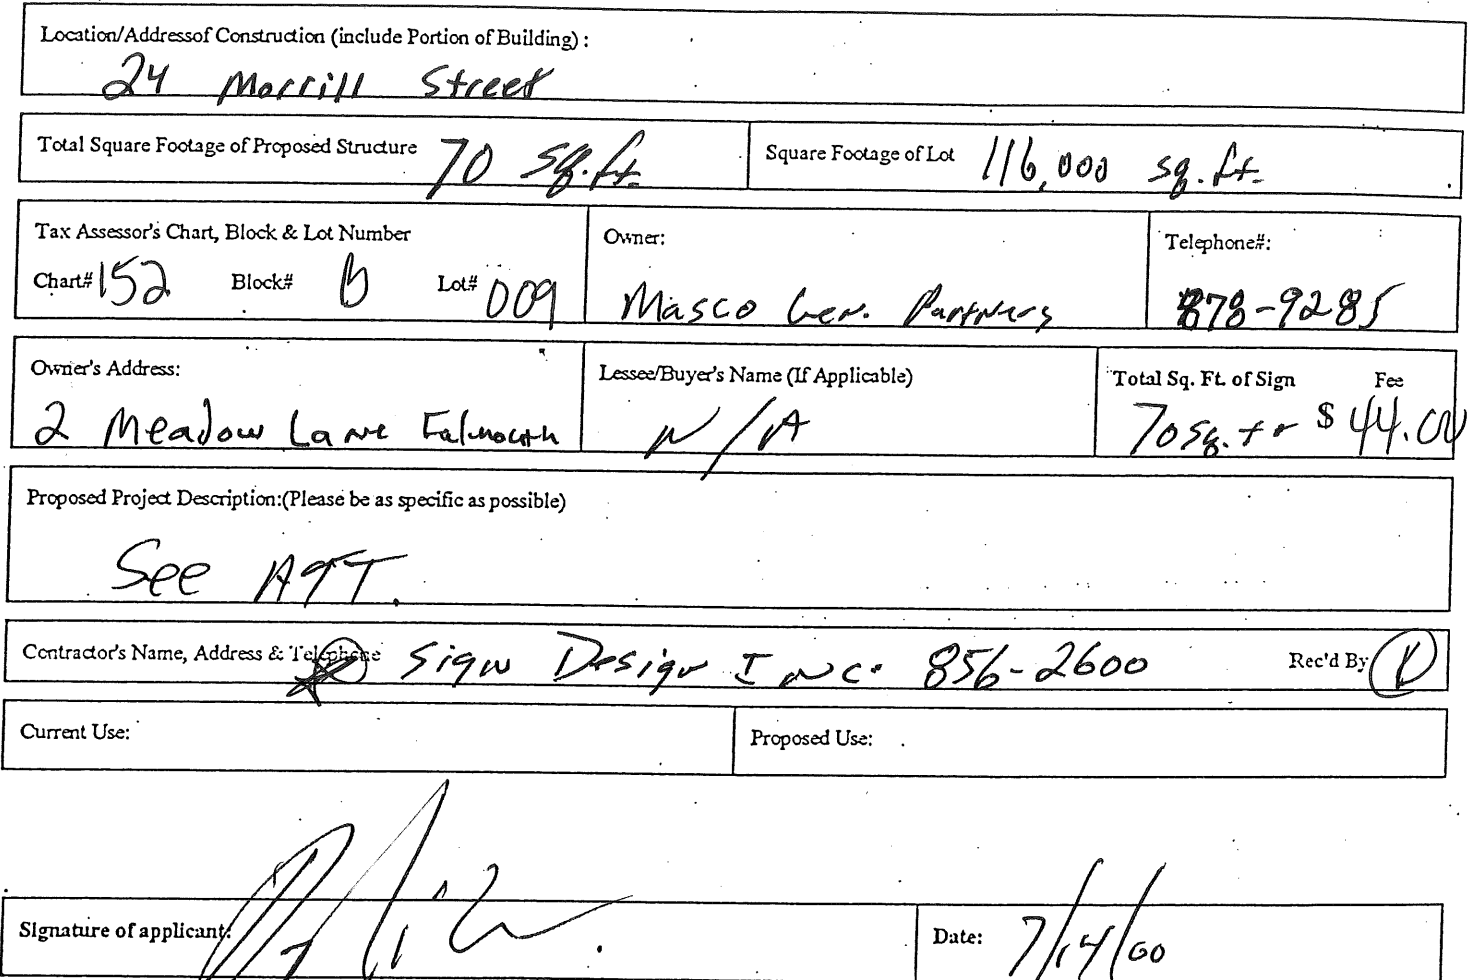 Location/Addressof Construction (include Portion of Building) :
24 Morrill Street
Total Square Footage of Proposed Structure 70 sq.ft. Square Footage of Lot 116,000 sq.ft.
Tax Assessor's Chart, Block & Lot Number Owner: Telephone#:
Chart# 152 Block# B Lot# 009 Masco Gen. Partners 878-9285
Owner's Address: Lessee/Buyer's Name (If Applicable) Total Sq. Ft. of Sign Fee
2 Meadow Lane Falmouth N/A 70 sq. ft $ 44.00
Proposed Project Description:(Please be as specific as possible)
See ATT.
Contractor's Name, Address & Telephone Sign Design INC. 856-2600 Rec'd By
Current Use: Proposed Use:
Signature of applicant: Date: 7/14/00